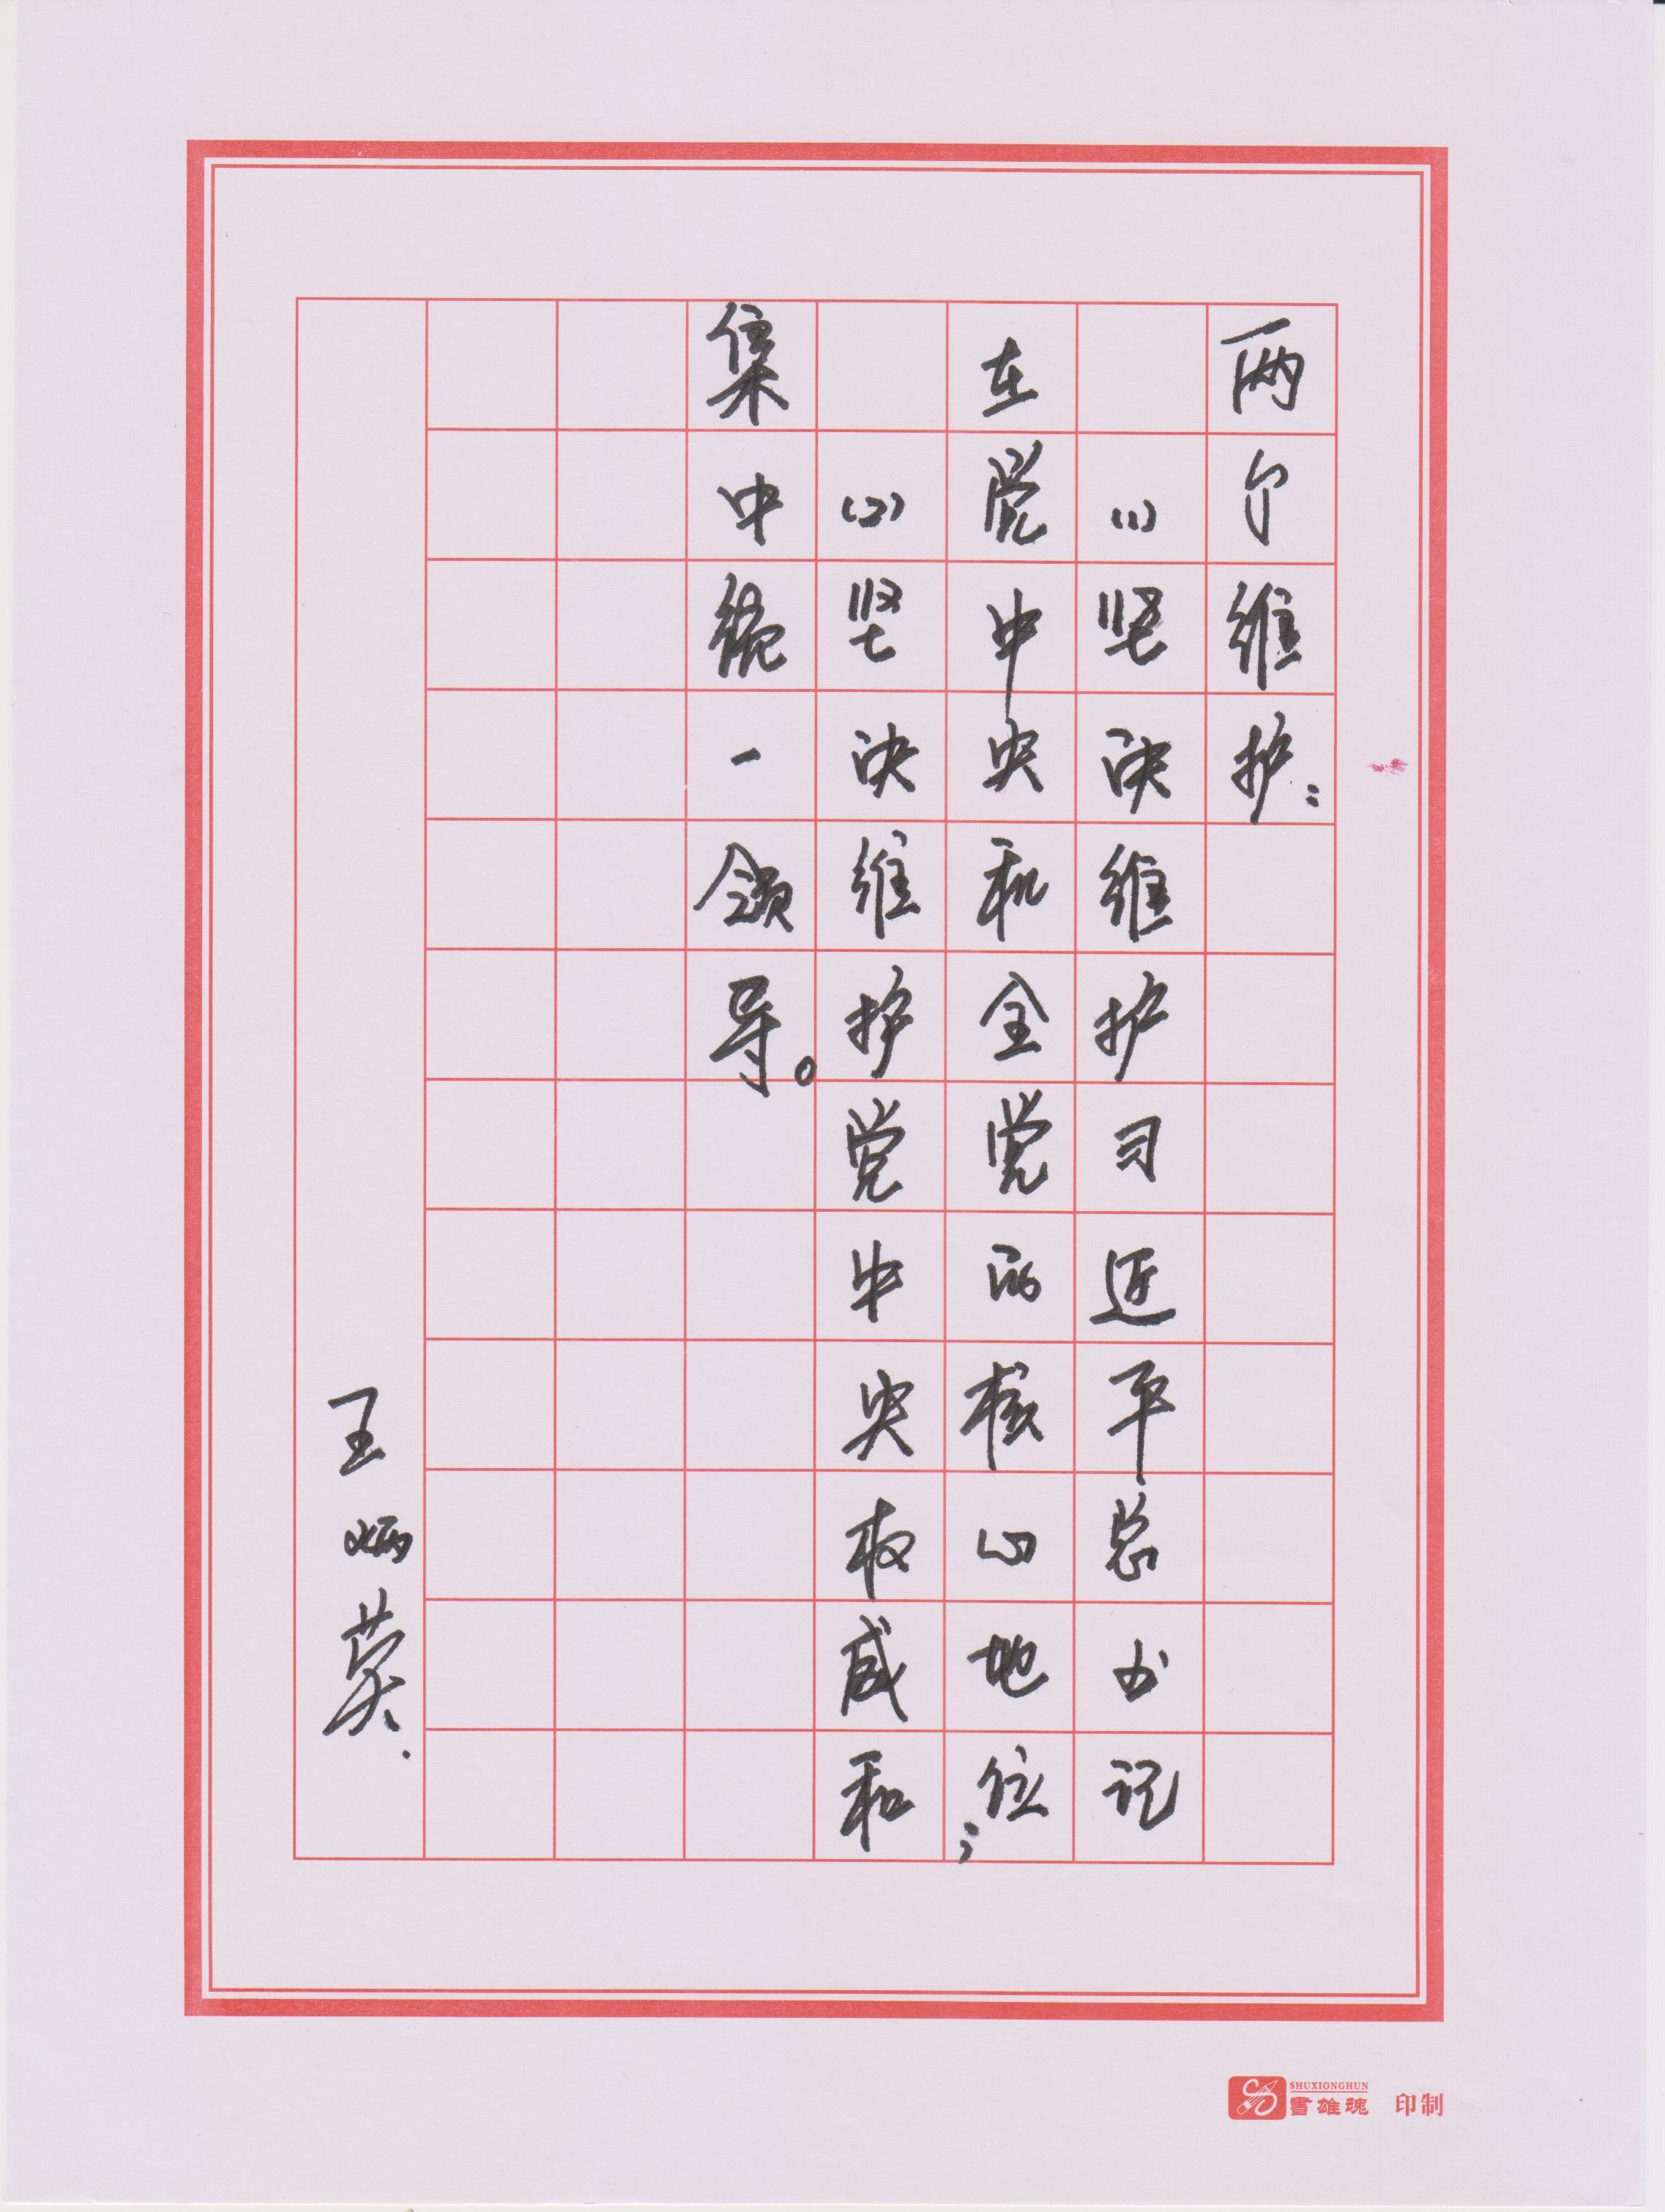 两个维护：
(1)坚决维护习近平总书记
在党中央和全党的核心地位；
(2)坚决维护党中央权威和
集中统一领导。
王炳英.
SHUXIONGHUN
書雄魂 印制